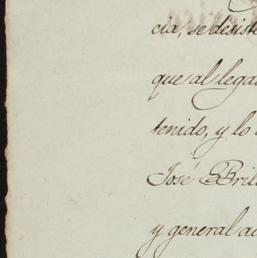 cia, se desiste
que al lega
tenido, y lo
José Bril
y general ac